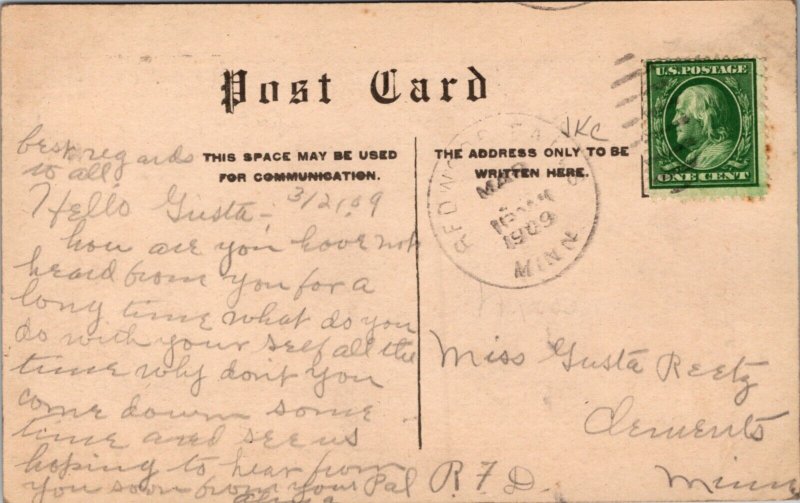 Post Card
THIS SPACE MAY BE USED
FOR COMMUNICATION.
THE ADDRESS ONLY TO BE
WRITTEN HERE.
U.S. POSTAGE
ONE CENT
JKC
MAR
1909
MINN.
best regards
to all
3/21,09
Hello Gusta,
how are you have not
heard from you for a
long time what do you
do with your self all the
time why don't you
come down some
time and see us
hoping to hear from
you soon from your Pal
Miss Gusta Reetz
Clements
R F D. Minn